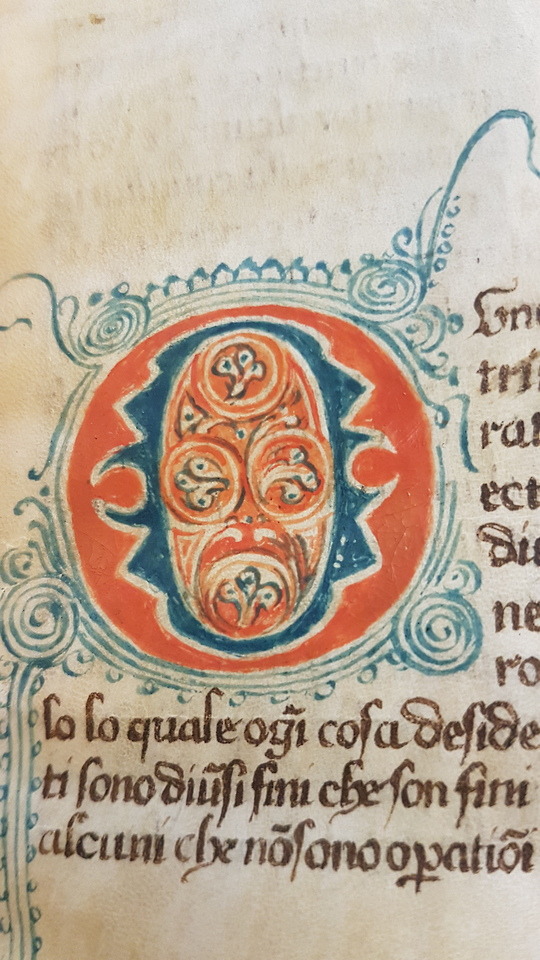 O
Gn
tri
rar
ect
diu
ne
ro
lo lo quale ogī cosa deside
ti sono diūsi fini che son fini
alcuni che nōsono opatiōi